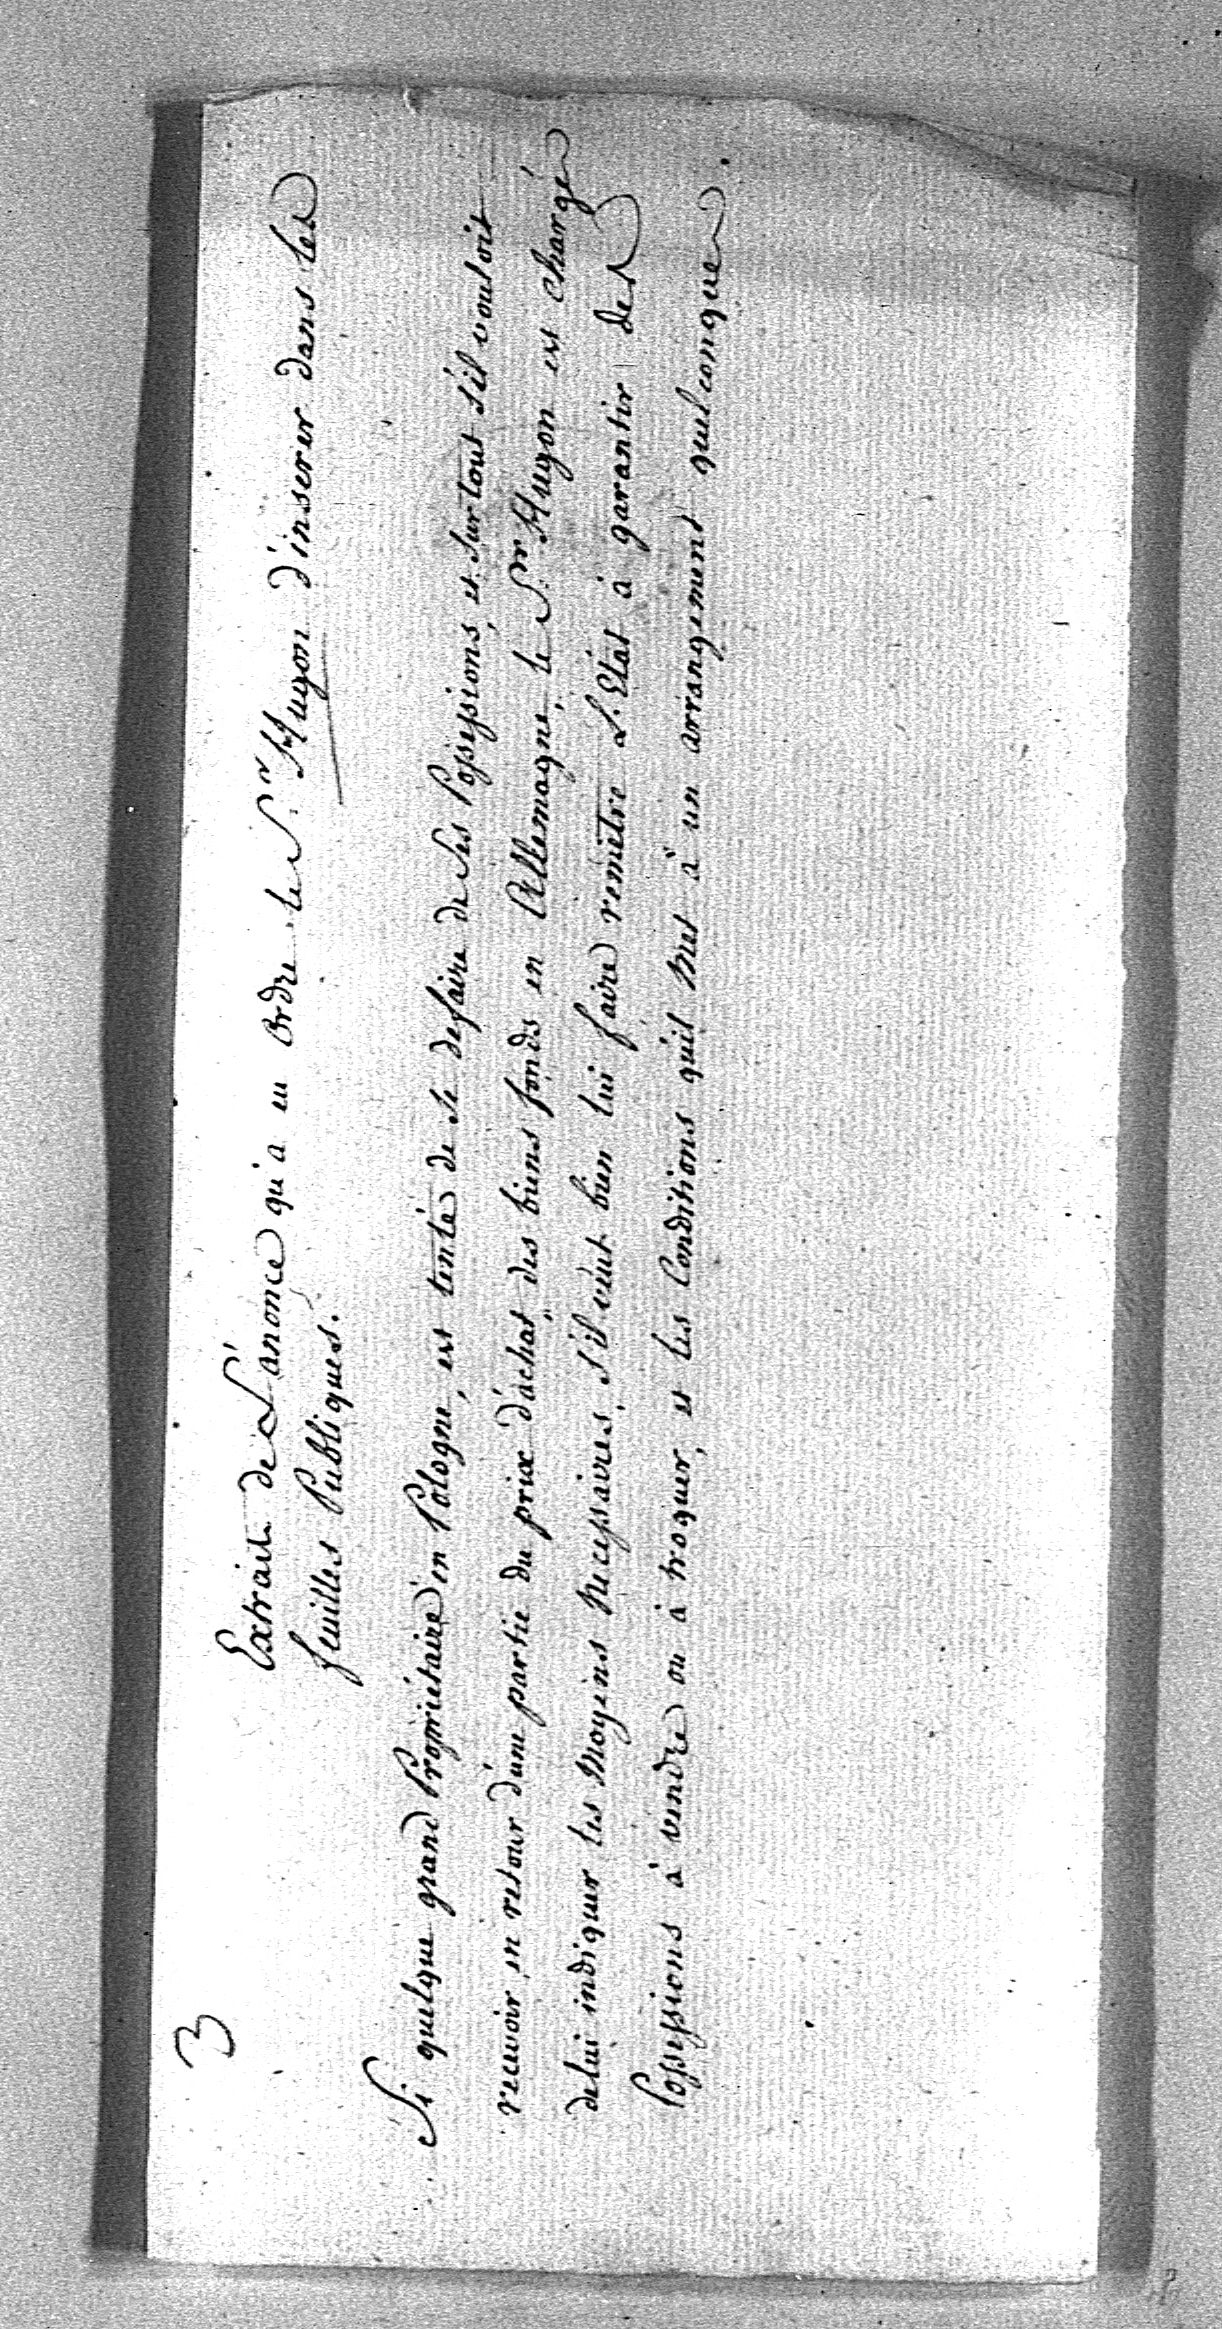 3
Extrait de L'anonce qu'a eu ordre le Sr. Hugon d'inserer dans les
feuilles Publiques.
Si quelque grand Propriétaire en Pologne, est tenté de se defaire de ses Possessions, et surtout s'il vouloit
recevoir en retour d'une partie du prix d'achat des biens fonds en Allemagne, le Sr. Hugon est chargé
de lui indiquer les Moyens necessaires, s'il veut bien lui faire remettre L'Etat à garantir des
Possessions à vendre ou à troquer, et les Conditions qu'il met à un arrangement quelconque.